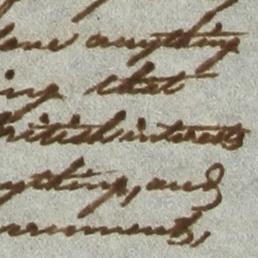 done anything
ing that
British interests
ything, and
vernment,